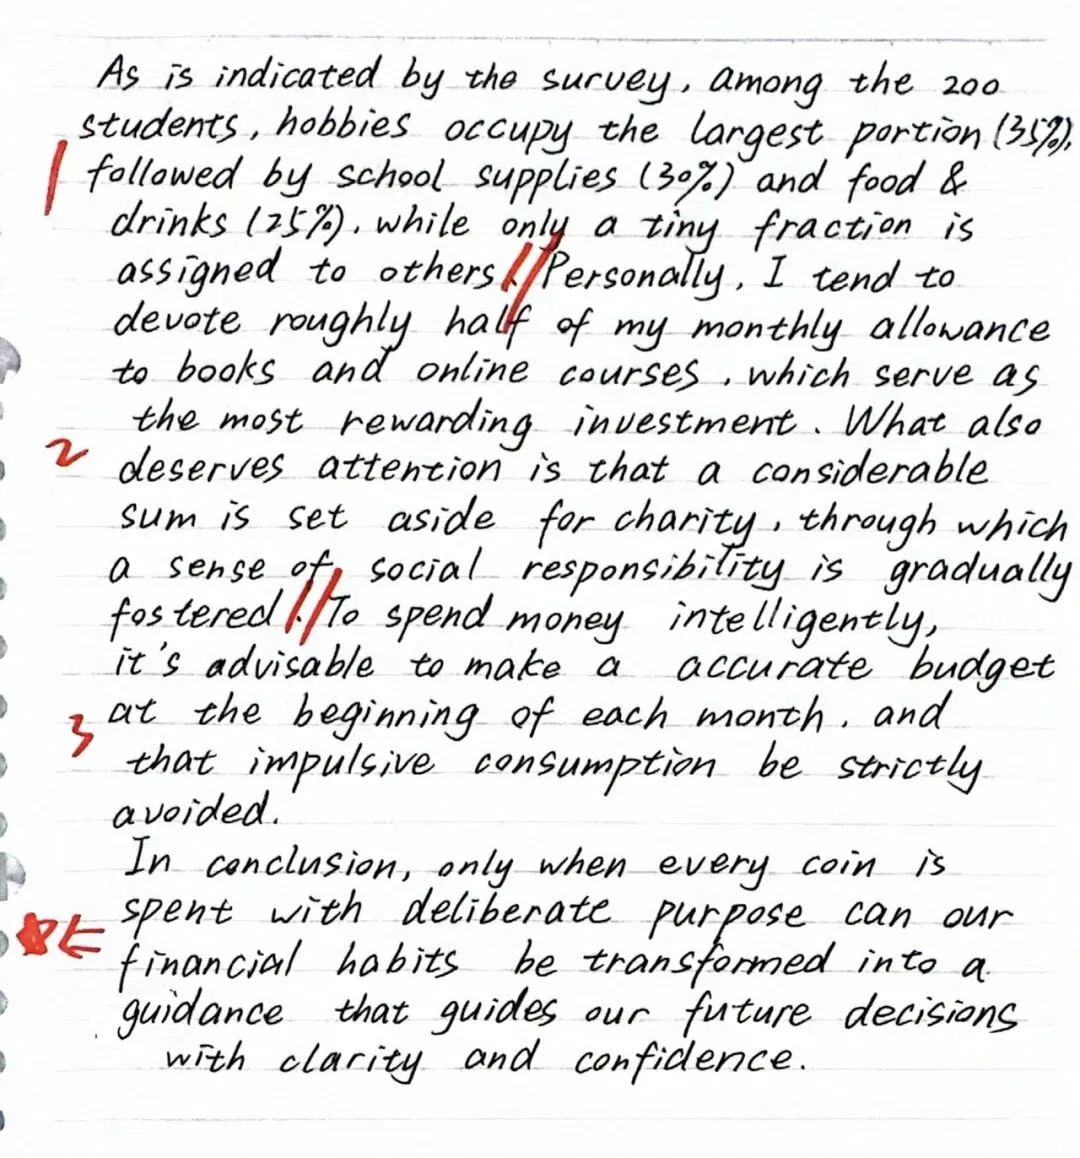 As is indicated by the survey, among the 200
students, hobbies occupy the largest portion (35%),
1 followed by school supplies (30%) and food &
drinks (25%), while only a tiny fraction is
assigned to others. // Personally, I tend to
devote roughly half of my monthly allowance
to books and online courses, which serve as
the most rewarding investment. What also
2 deserves attention is that a considerable
sum is set aside for charity, through which
a sense of social responsibility is gradually
fostered. // To spend money intelligently,
it's advisable to make a accurate budget
3 at the beginning of each month, and
that impulsive consumption be strictly
avoided.
In conclusion, only when every coin is
spent with deliberate purpose can our
financial habits be transformed into a
guidance that guides our future decisions
with clarity and confidence.